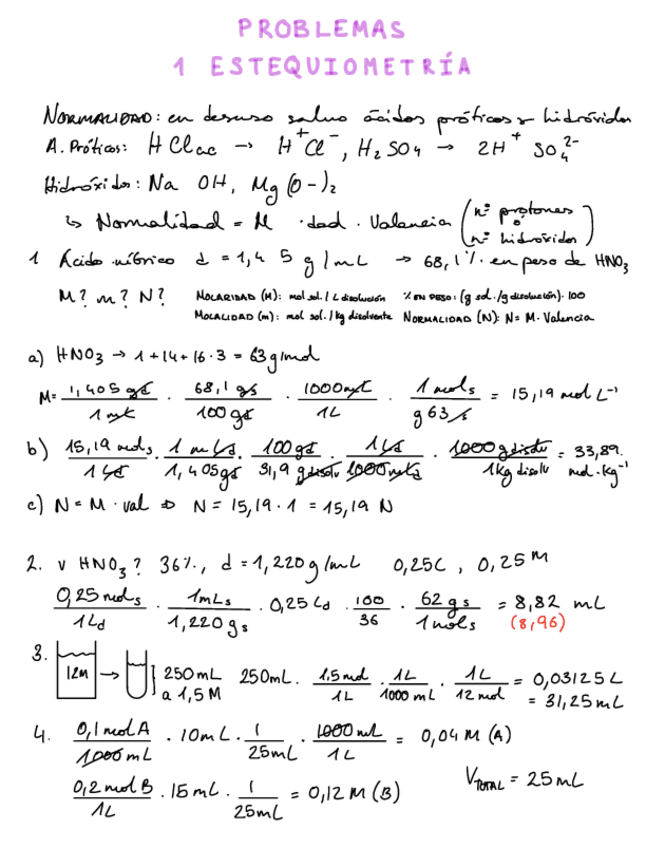 PROBLEMAS
1 ESTEQUIOMETRÍA
NORMALIDAD: en desuso salvo ácidos próticos y hidróxidos
A. Próticos: HClac → H⁺Cl⁻, H₂SO₄ → 2H⁺ SO₄²⁻
Hidróxidos: Na OH, Mg(O-)₂
↳ Normalidad = M · dad · Valencia (nº protones o nº hidróxidos)
1 Ácido nítrico d = 1,4 5 g/mL → 68,1%. en peso de HNO₃
M? m? N? MOLARIDAD (M): mol sol. / L disolución % EN PESO: (g sol. /g disolución). 100
MOLALIDAD (m): mol sol. / kg disolvente NORMALIDAD (N): N = M. Valencia
a) HNO₃ → 1+14+16·3 = 63 g/mol
M = 1,405 gd / 1 mL · 68,1 gs / 100 gd · 1000 mL / 1L · 1 mol s / g 63 s = 15,19 mol L⁻¹
b) 15,19 mol s / 1 Ld · 1 mLd / 1,405 gd · 100 gd / 31,9 g disolv · 1 Ld / 1000 mLd · 1000 g disolv / 1 kg disolv = 33,89 mol·kg⁻¹
c) N = M · val ⇒ N = 15,19 · 1 = 15,19 N
2. v HNO₃? 36%., d = 1,220 g/mL 0,25L, 0,25 M
0,25 mol s / 1 Ld · 1 mL s / 1,220 g s · 0,25 Ld · 100 / 36 · 62 g s / 1 mol s = 8,82 mL
(8,96)
3. 12M → 250 mL a 1,5 M 250 mL · 1,5 mol / 1L · 1L / 1000 mL · 1L / 12 mol = 0,03125 L
= 31,25 mL
4. 0,1 mol A / 1000 mL · 10 mL · 1 / 25 mL · 1000 mL / 1L = 0,04 M (A)
0,2 mol B / 1L · 15 mL · 1 / 25 mL = 0,12 M (B) V TOTAL = 25 mL